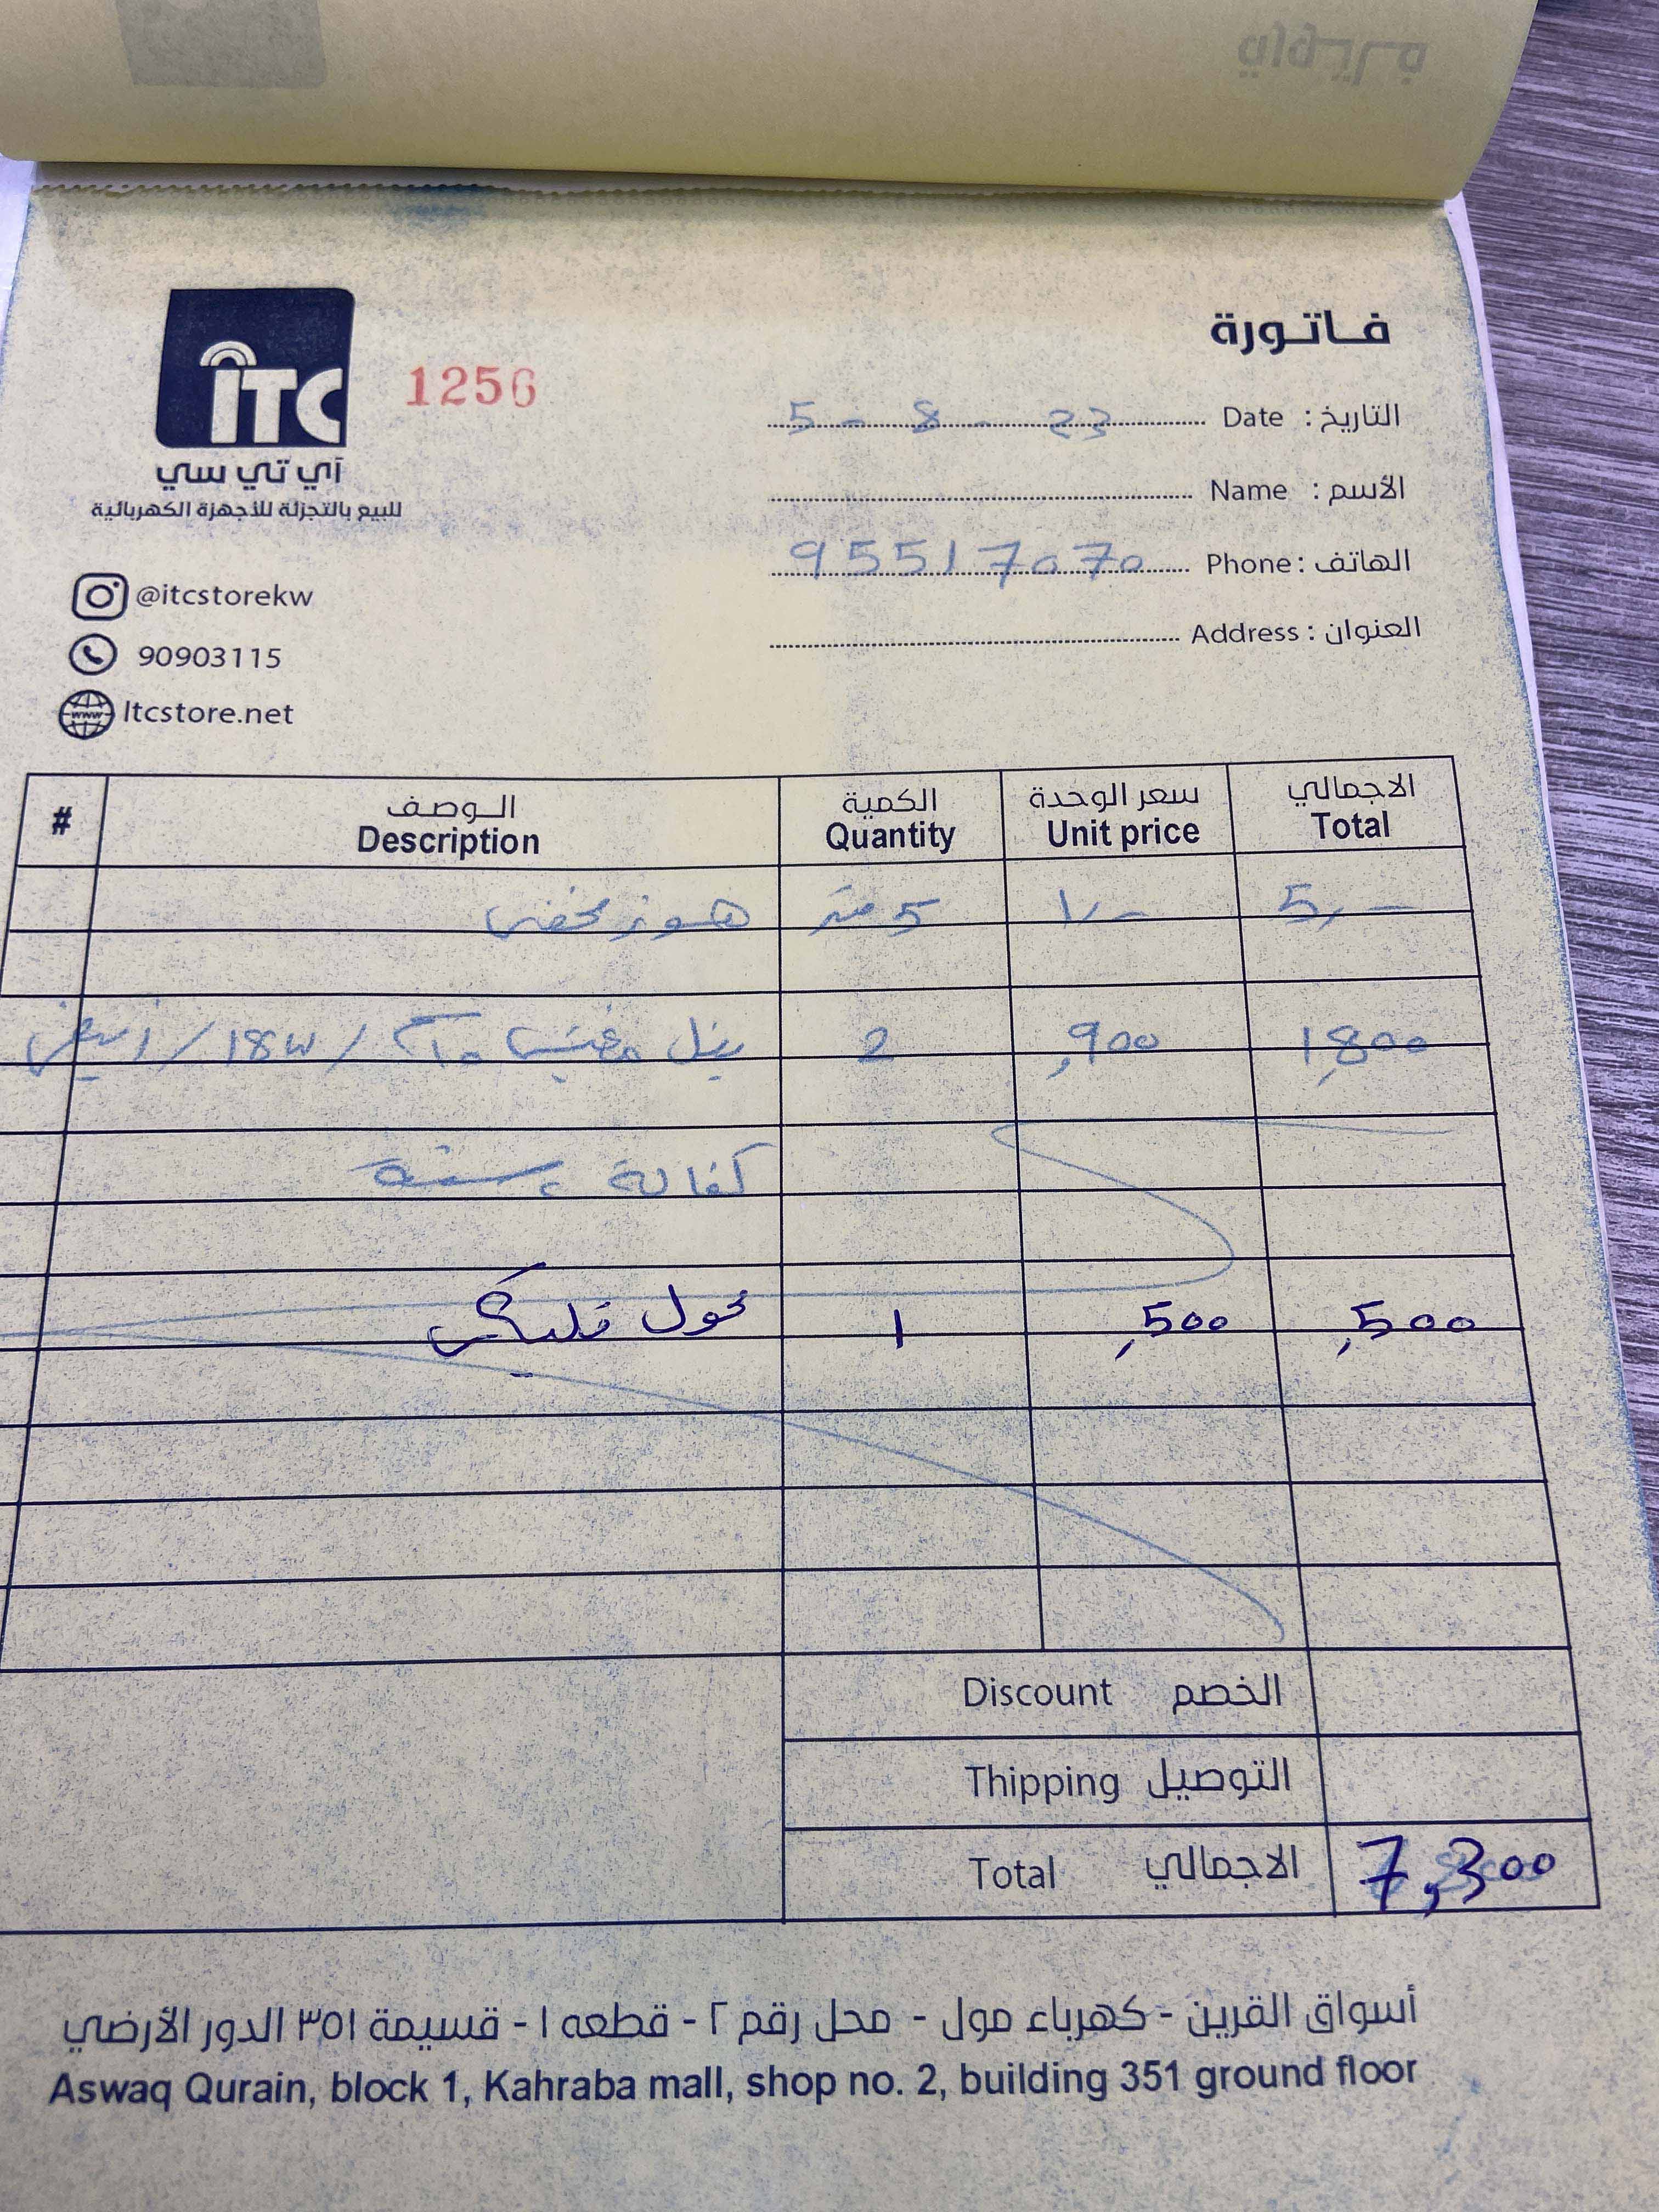 فاتورة
ITC
1256
آي تي سي
للبيع بالتجزئة للأجهزة الكهربائية
التاريخ : Date 5 - 8 - 23
الأسم : Name
الهاتف : Phone 95517070
العنوان : Address
@itcstorekw
90903115
Itcstore.net
# الوصف الكمية سعر الوحدة الاجمالي
Description Quantity Unit price Total
هوز مخفي 5 متر 1,- 5,-
بنل 18W / ابيض 2 ,900 1,800
كفالة سنة
محول فليكس 1 ,500 ,500
Discount الخصم
Thipping التوصيل
Total الاجمالي 7,300
أسواق القرين - كهرباء مول - محل رقم ٢ - قطعه ١ - قسيمة ٣٥١ الدور الأرضي
Aswaq Qurain, block 1, Kahraba mall, shop no. 2, building 351 ground floor